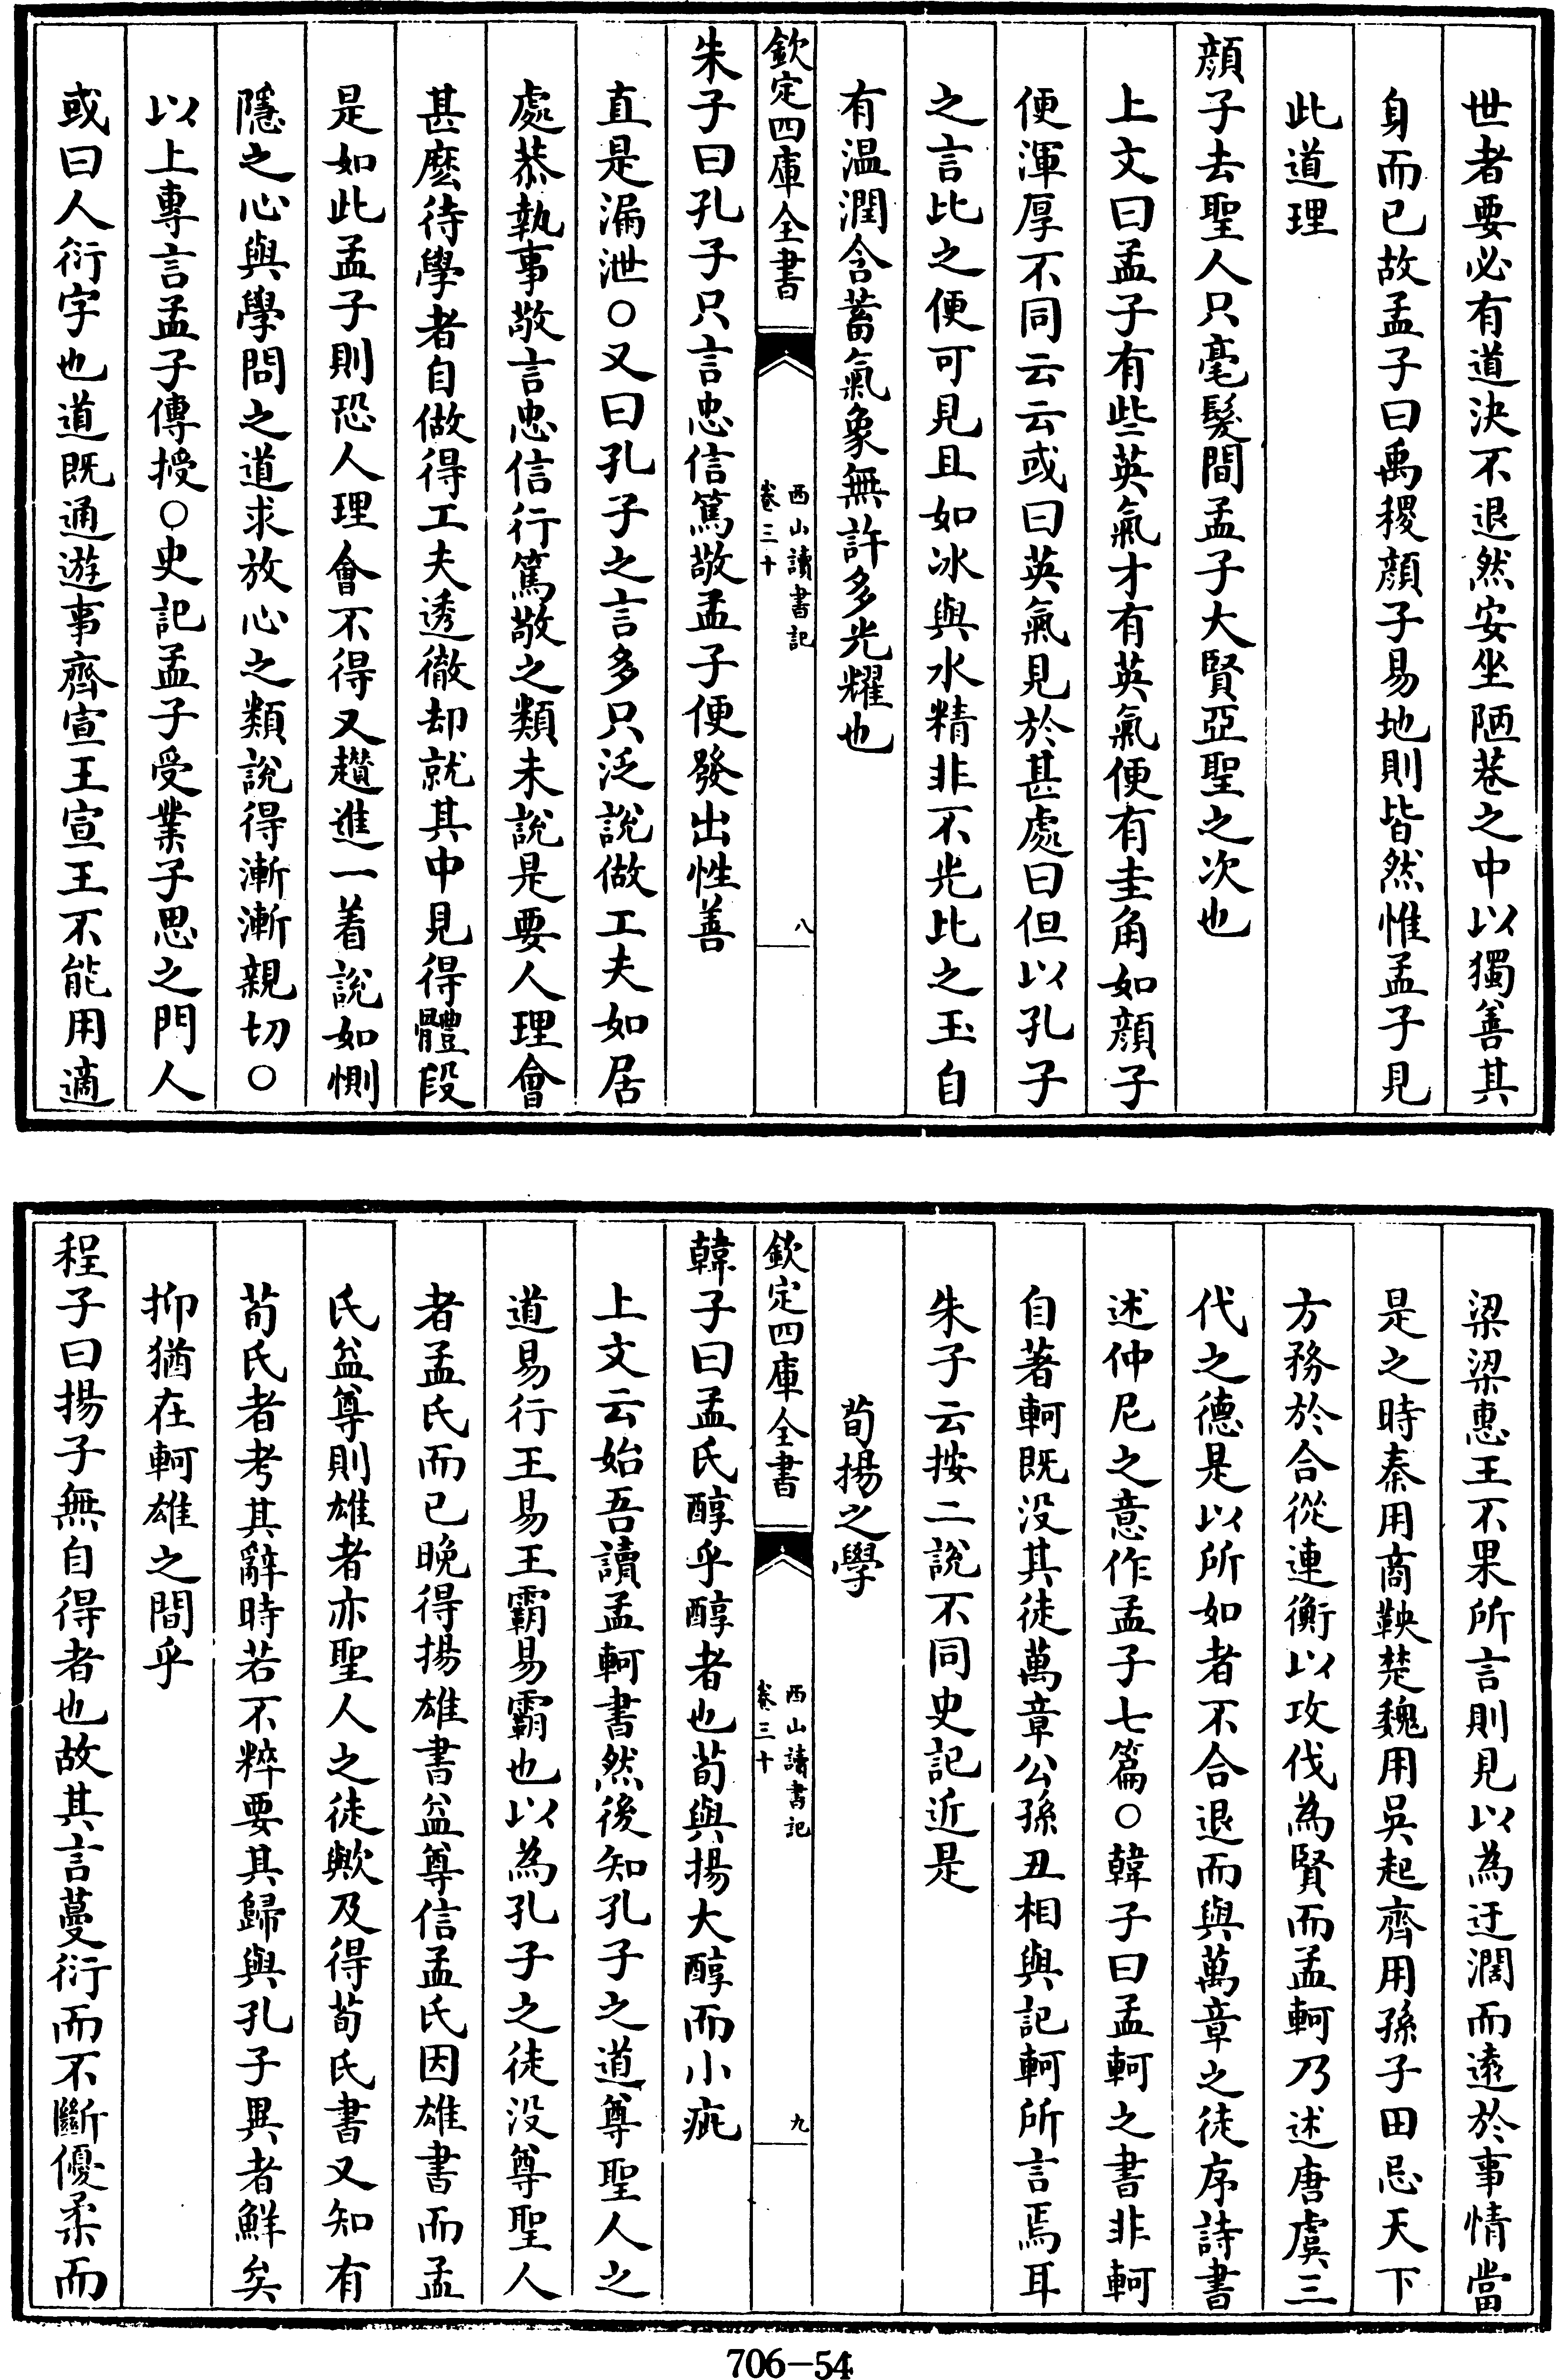 世者要必有道決不退然安坐陋巷之中以獨善其
身而已故孟子曰禹稷顔子易地則皆然惟孟子見
此道理
顔子去聖人只毫髮間孟子大賢亞聖之次也
上文曰孟子有些英氣才有英氣便有圭角如顔子
便渾厚不同云云或曰英氣見於甚處曰但以孔子
之言比之便可見且如冰與水精非不光比之玉自
有温潤含蓄氣象無許多光耀也
欽定四庫全書
西山讀書記
卷三十
八
朱子曰孔子只言忠信篤敬孟子便發出性善
直是漏泄○又曰孔子之言多只泛說做工夫如居
處恭執事敬言忠信行篤敬之類未說是要人理會
甚麽待學者自做得工夫透徹却就其中見得體段
是如此孟子則恐人理會不得又趲進一着說如惻
隱之心與學問之道求放心之類說得漸漸親切○
以上專言孟子傳授○史記孟子受業子思之門人
或曰人衍字也道既通遊事齊宣王宣王不能用適
梁梁惠王不果所言則見以為迂濶而遠於事情當
是之時秦用商鞅楚魏用吳起齊用孫子田忌天下
方務於合從連衡以攻伐為賢而孟軻乃述唐虞三
代之德是以所如者不合退而與萬章之徒序詩書
述仲尼之意作孟子七篇○韓子曰孟軻之書非軻
自著軻既没其徒萬章公孫丑相與記軻所言焉耳
朱子云按二說不同史記近是
荀揚之學
欽定四庫全書
西山讀書記
卷三十
九
韓子曰孟氏醇乎醇者也荀與揚大醇而小疵
上文云始吾讀孟軻書然後知孔子之道尊聖人之
道易行王易王霸易霸也以為孔子之徒没尊聖人
者孟氏而已晚得揚雄書益尊信孟氏因雄書而孟
氏益尊則雄者亦聖人之徒歟及得荀氏書又知有
荀氏者考其辭時若不粹要其歸與孔子異者鮮矣
抑猶在軻雄之間乎
程子曰揚子無自得者也故其言蔓衍而不斷優柔而
706-54